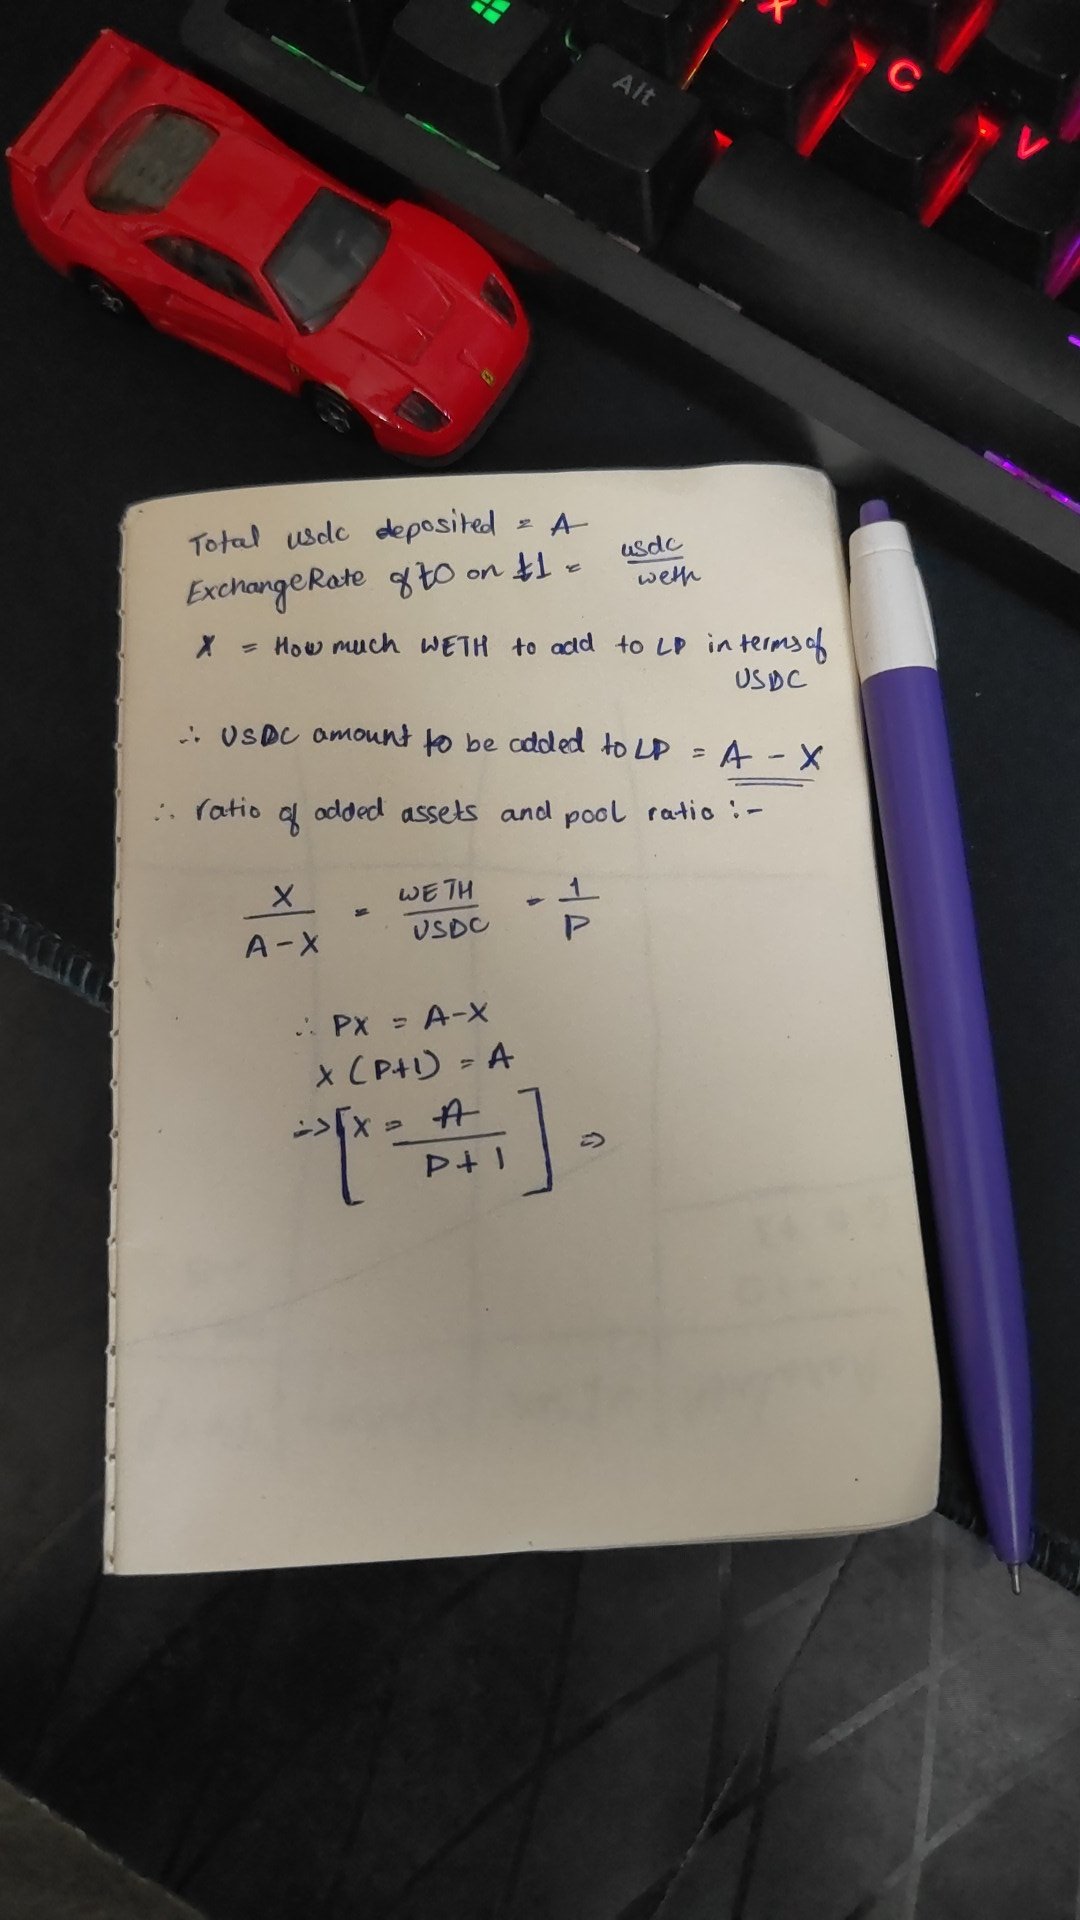 Alt
X
C
V
Total usdc deposited = A
ExchangeRate of t0 on t1 = usdc / weth
X = How much WETH to add to LP in terms of
USDC
∴ USDC amount to be added to LP = A - X
∴ ratio of added assets and pool ratio :-
X / A-X = WETH / USDC = 1 / P
∴ PX = A-X
X (P+1) = A
=> [X = A / P+1] =>